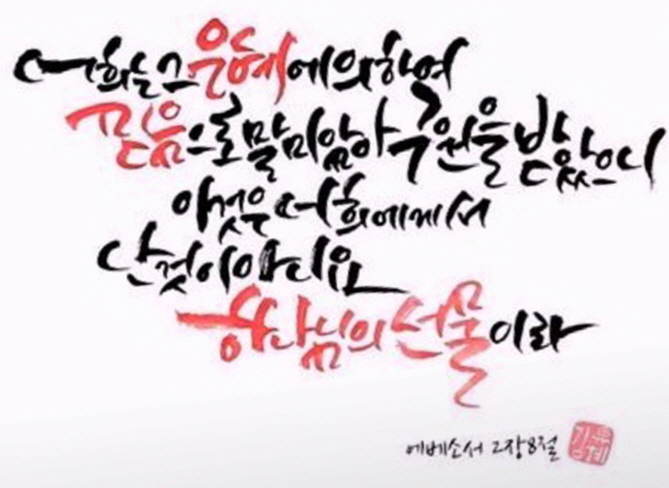 너희는 그 은혜에 의하여
믿음으로 말미암아 구원을 받았으니
이것은 너희에게서
난 것이 아니요
하나님의 선물이라
에베소서 2장 8절